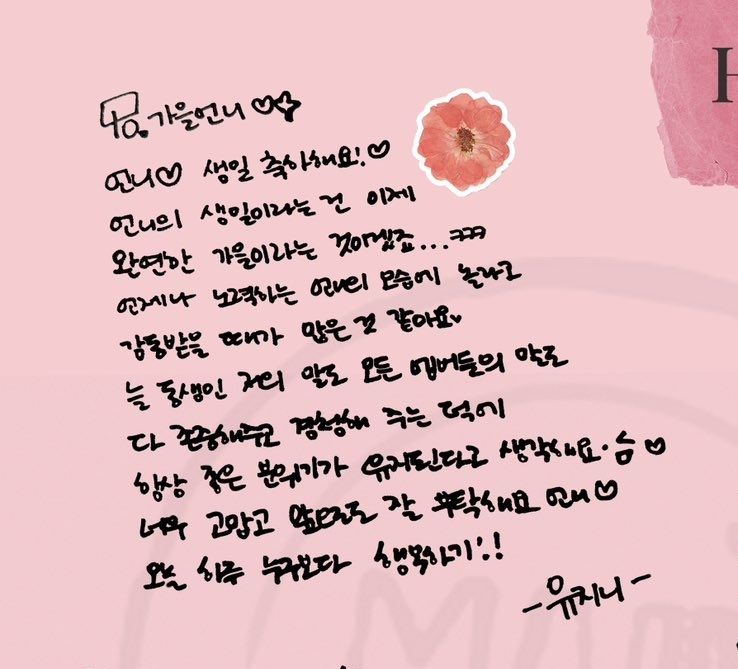 To. 가을언니♡✦
언니♡ 생일 축하해요!♡
언니의 생일이라는 건 이제
완연한 가을이라는 것이겠죠...ㅋㅋㅋ
언제나 노력하는 언니의 모습에 놀라고
감동받을 때가 많은 것 같아요♥
늘 동생인 저의 말도 모든 멤버들의 말도
다 존중해주고 경청해 주는 덕에
항상 좋은 분위기가 유지된다고 생각해요.
너무 고맙고 앞으로도 잘 부탁해요 언니♡
오늘 하루 누구보다 행복하기!!
-유지니-
H